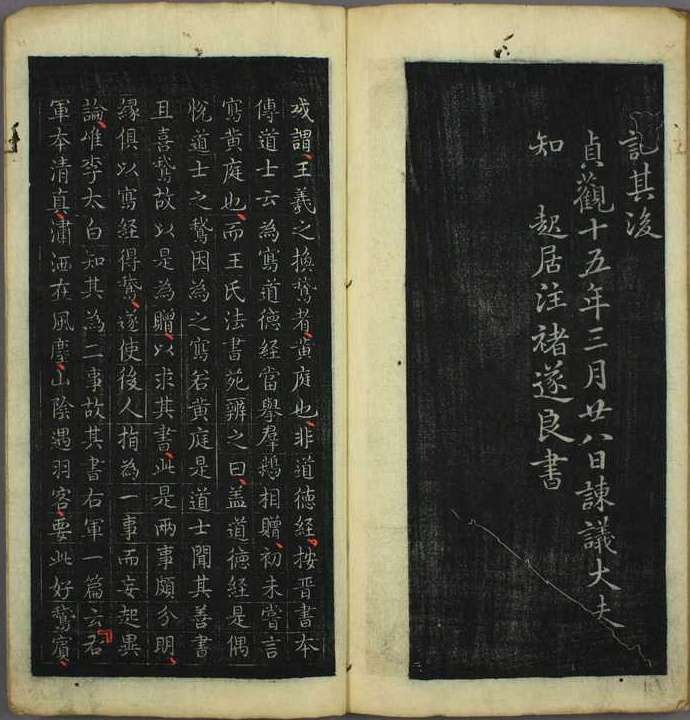 記其後
貞觀十五年三月廿八日諫議大夫
知　起居注褚遂良書
或謂王羲之換鵞者黄庭也非道德經按晋書本
傳道士云為寫道德經當舉羣鵝相贈初未嘗言
寫黄庭也而王氏法書苑辨之曰盖道德經是偶
悅道士之鵞因為之寫若黄庭是道士聞其善書
且喜鵞故以是為贈以求其書此是兩事頗分明
緣俱以寫經得鵞遂使後人指為一事而妄起異
論唯李太白知其為二事故其書右軍一篇云右
軍本清真瀟洒在風塵山陰遇羽客要此好鵞賓